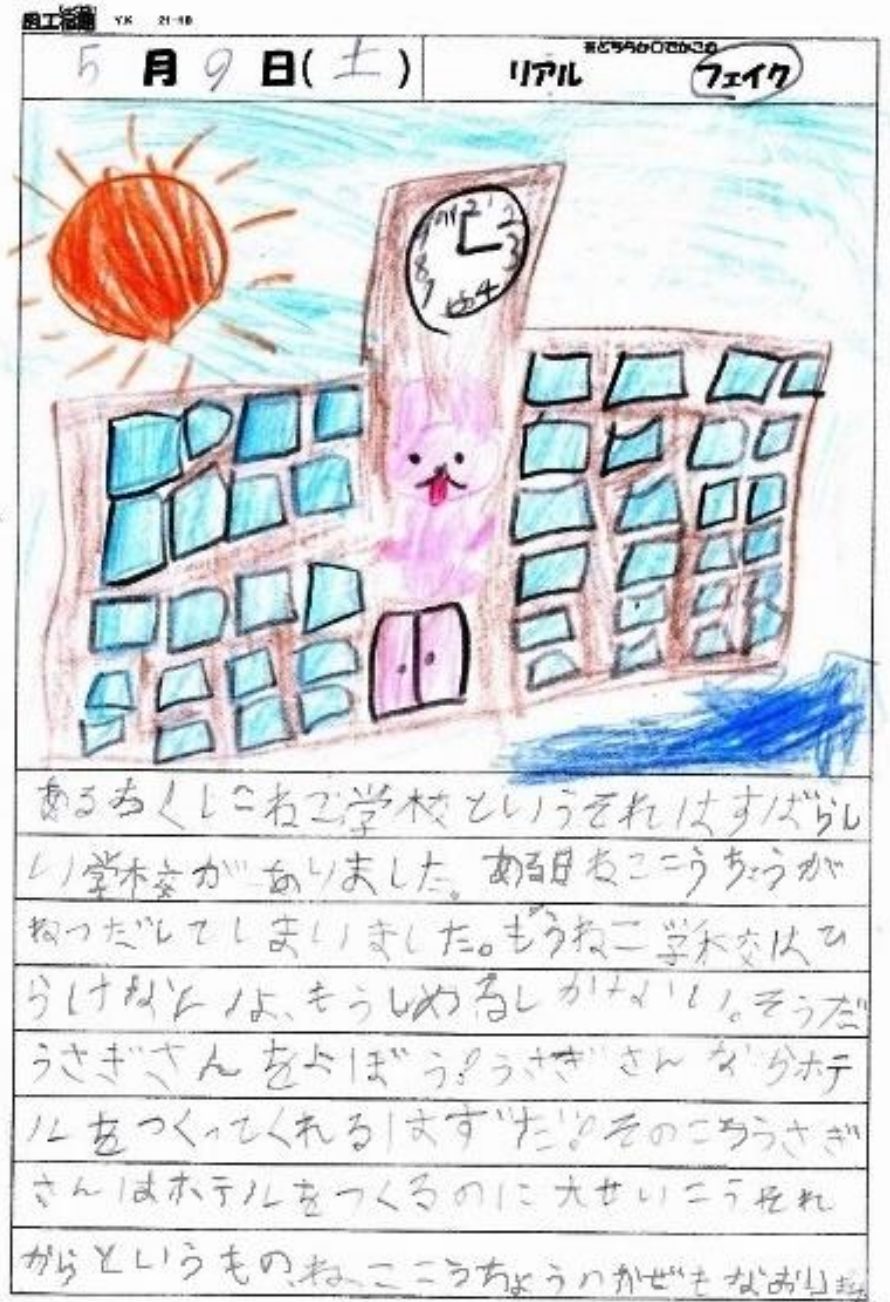 Y.K 21-40
※どちらか○でかこむ
5月9日(土) リアル フェイク
12 1 2 3 4 7 8
あるねこ学校というそれはすばらし
い学校がありました。ある日ねここうちょうが
ねつだしてしまいました。もうねこ学校はひ
らけないよ、もうしめるしかない。そうだ
うさぎさんをよぼう!うさぎさんならホテ
ルをつくってくれるはずだ!そのころうさぎ
さんはホテルをつくるのに大せいこうそれ
からというもの、ねここうちょうのかぜもなおりました